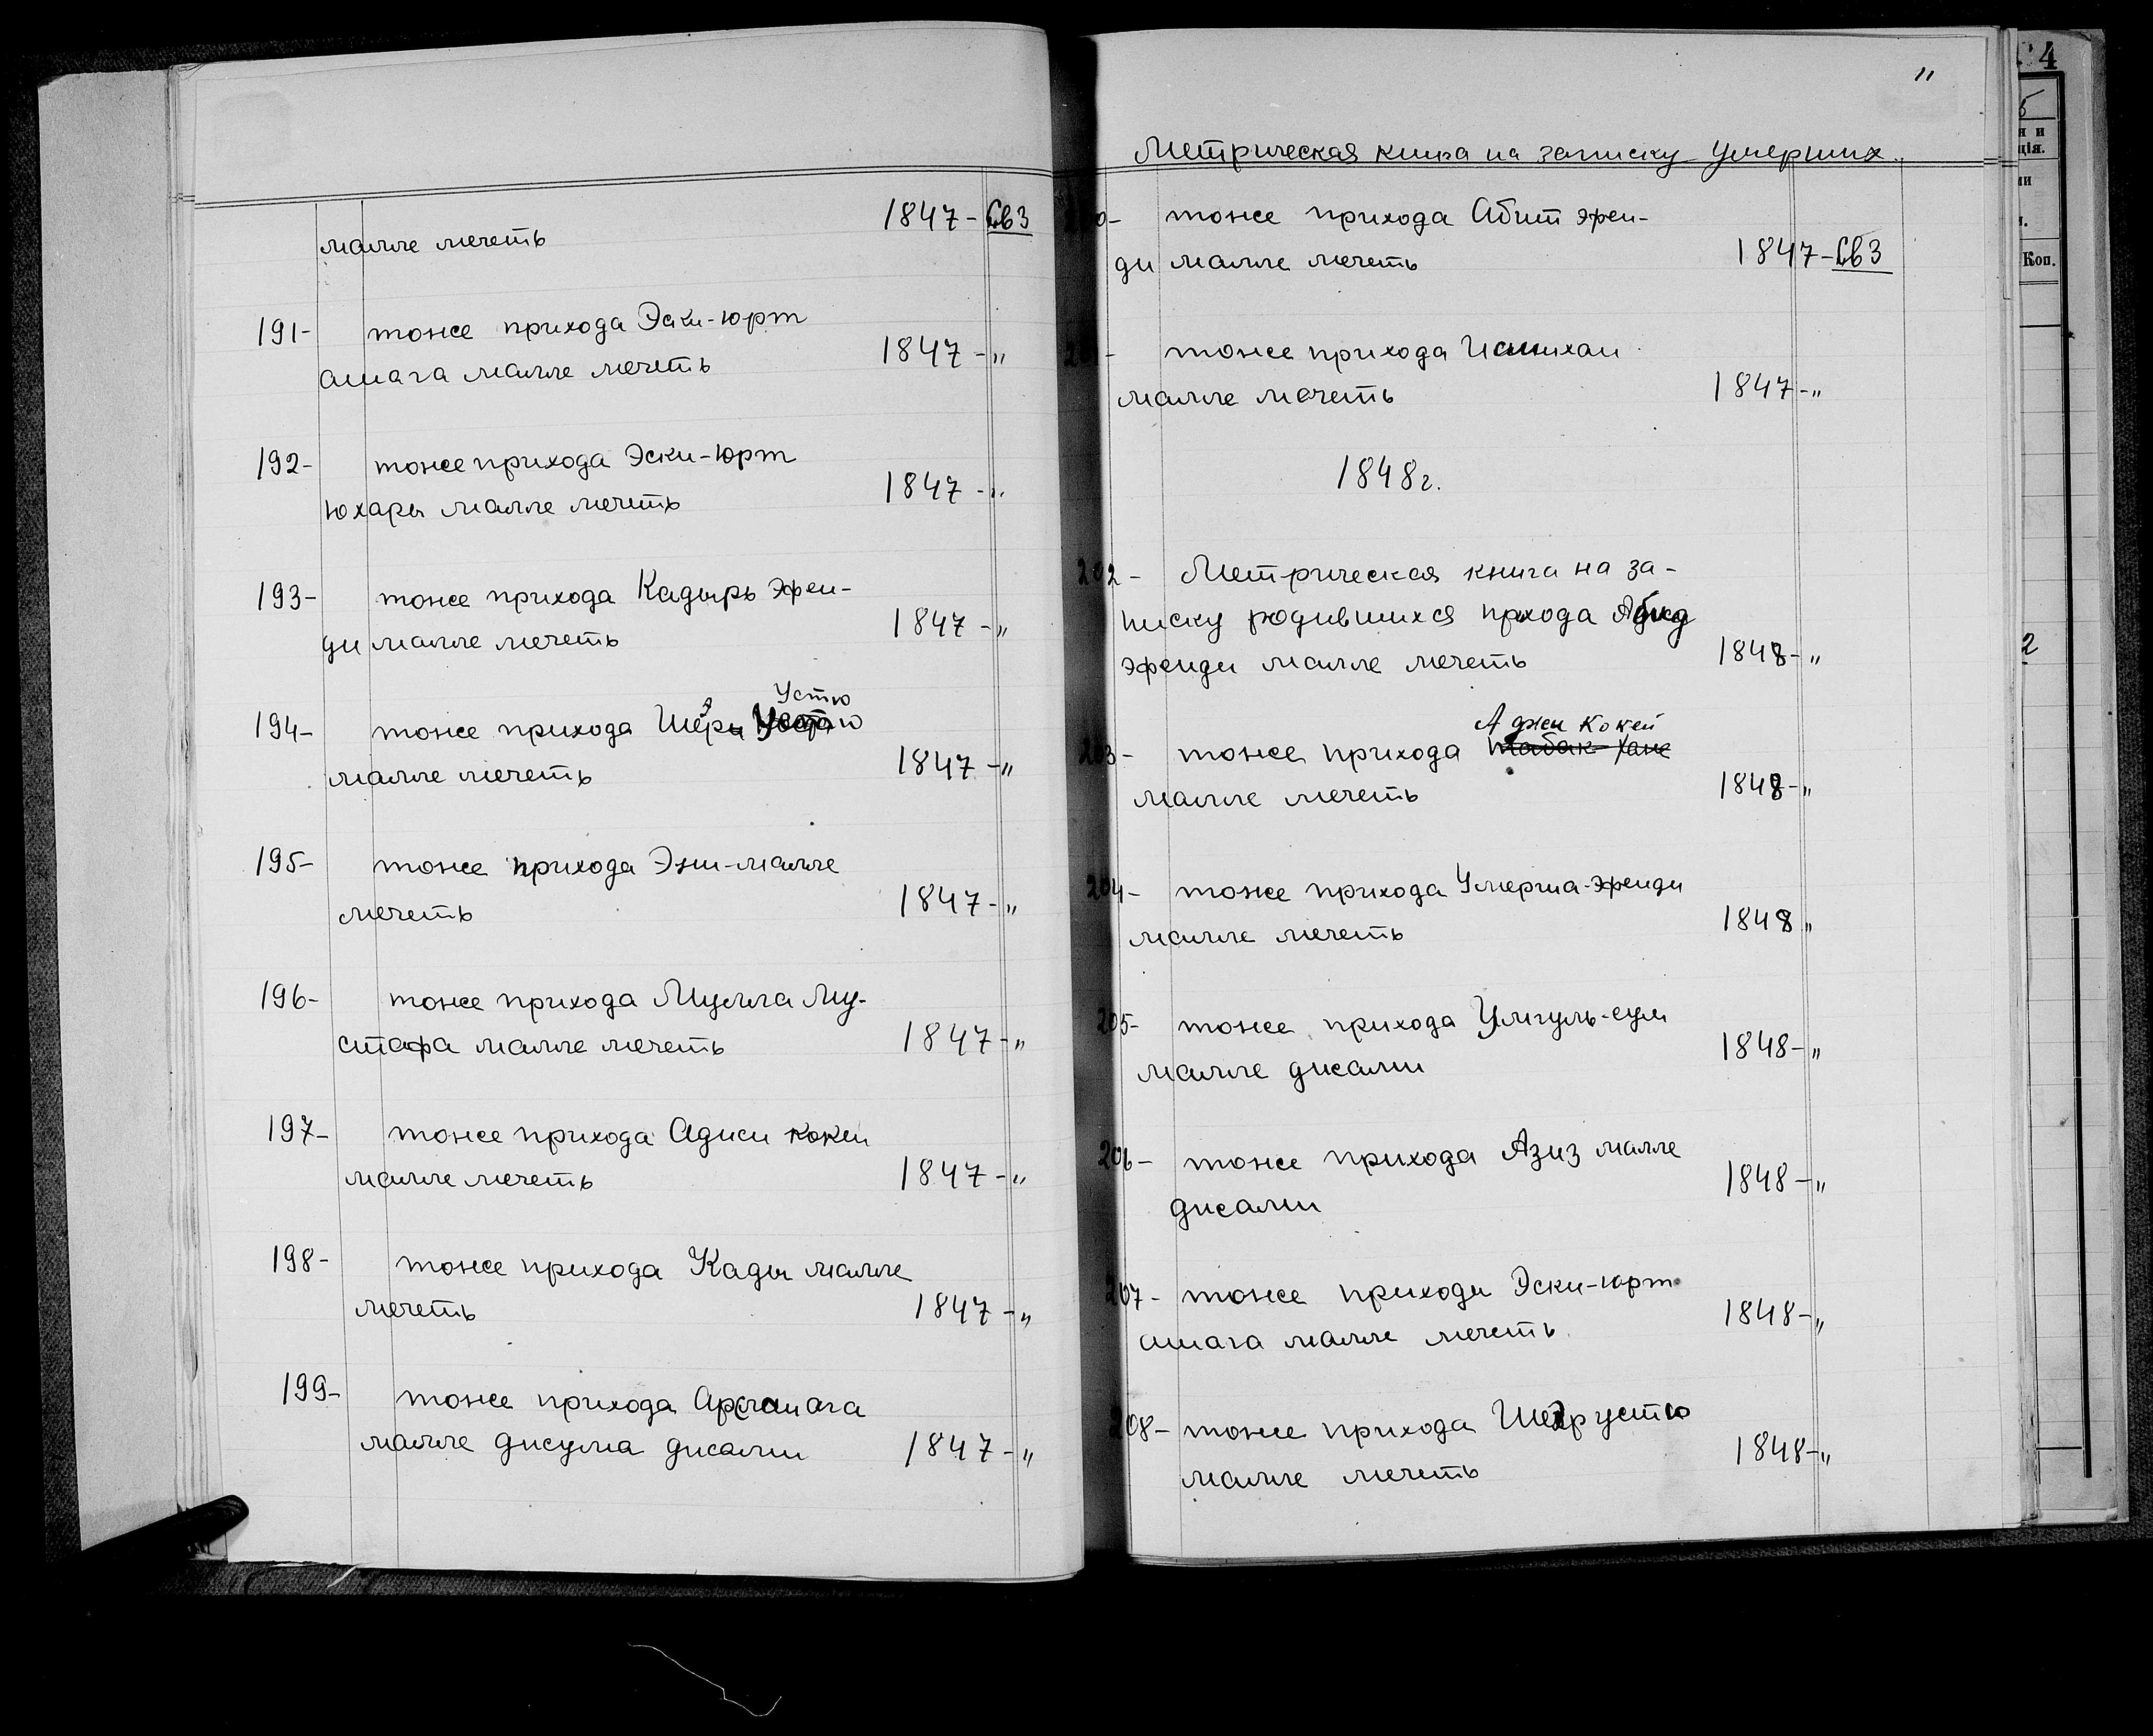 малле мечеть 1847 - Св 3
191- тоже прихода Эски-юрт
ашага малле мечеть 1847 - "
192- тоже прихода Эски-юрт
юхары малле мечеть 1847 - "
193- тоже прихода Кадырь эфен-
ди малле мечеть 1847 - "
Устю
194- тоже прихода Шеэр
малле мечеть 1847 - "
195- тоже прихода Эни-малле
мечеть 1847 - "
196- тоже прихода Мулла Му-
стафа малле мечеть 1847 - "
197- тоже прихода Аджи кокеи
малле мечеть 1847 - "
198- тоже прихода Кады малле
мечеть 1847 - "
199- тоже прихода Арслан ага
малле джума джами 1847 - "
11
Метрическая книга на записку умерших.
200- тоже прихода Абит эфен-
ди малле мечеть 1847 - Св 3
201- тоже прихода
малле мечеть 1847 - "
1848 г.
202- Метрическая книга на за-
писку родившихся прихода Абид
эфенди малле мечеть 1848 - "
Аджи Кокей
203- тоже прихода Табак-хане
малле мечеть 1848 - "
204- тоже прихода Умерша-эфенди
малле мечеть 1848 "
205- тоже прихода Умгуль-сум
малле джами 1848 - "
206- тоже прихода Азиз малле
джами 1848 - "
207- тоже прихода Эски-юрт
ашага малле мечеть 1848 - "
208- тоже прихода Шеэр устю
малле мечеть 1848 - "
4
Коп.
2